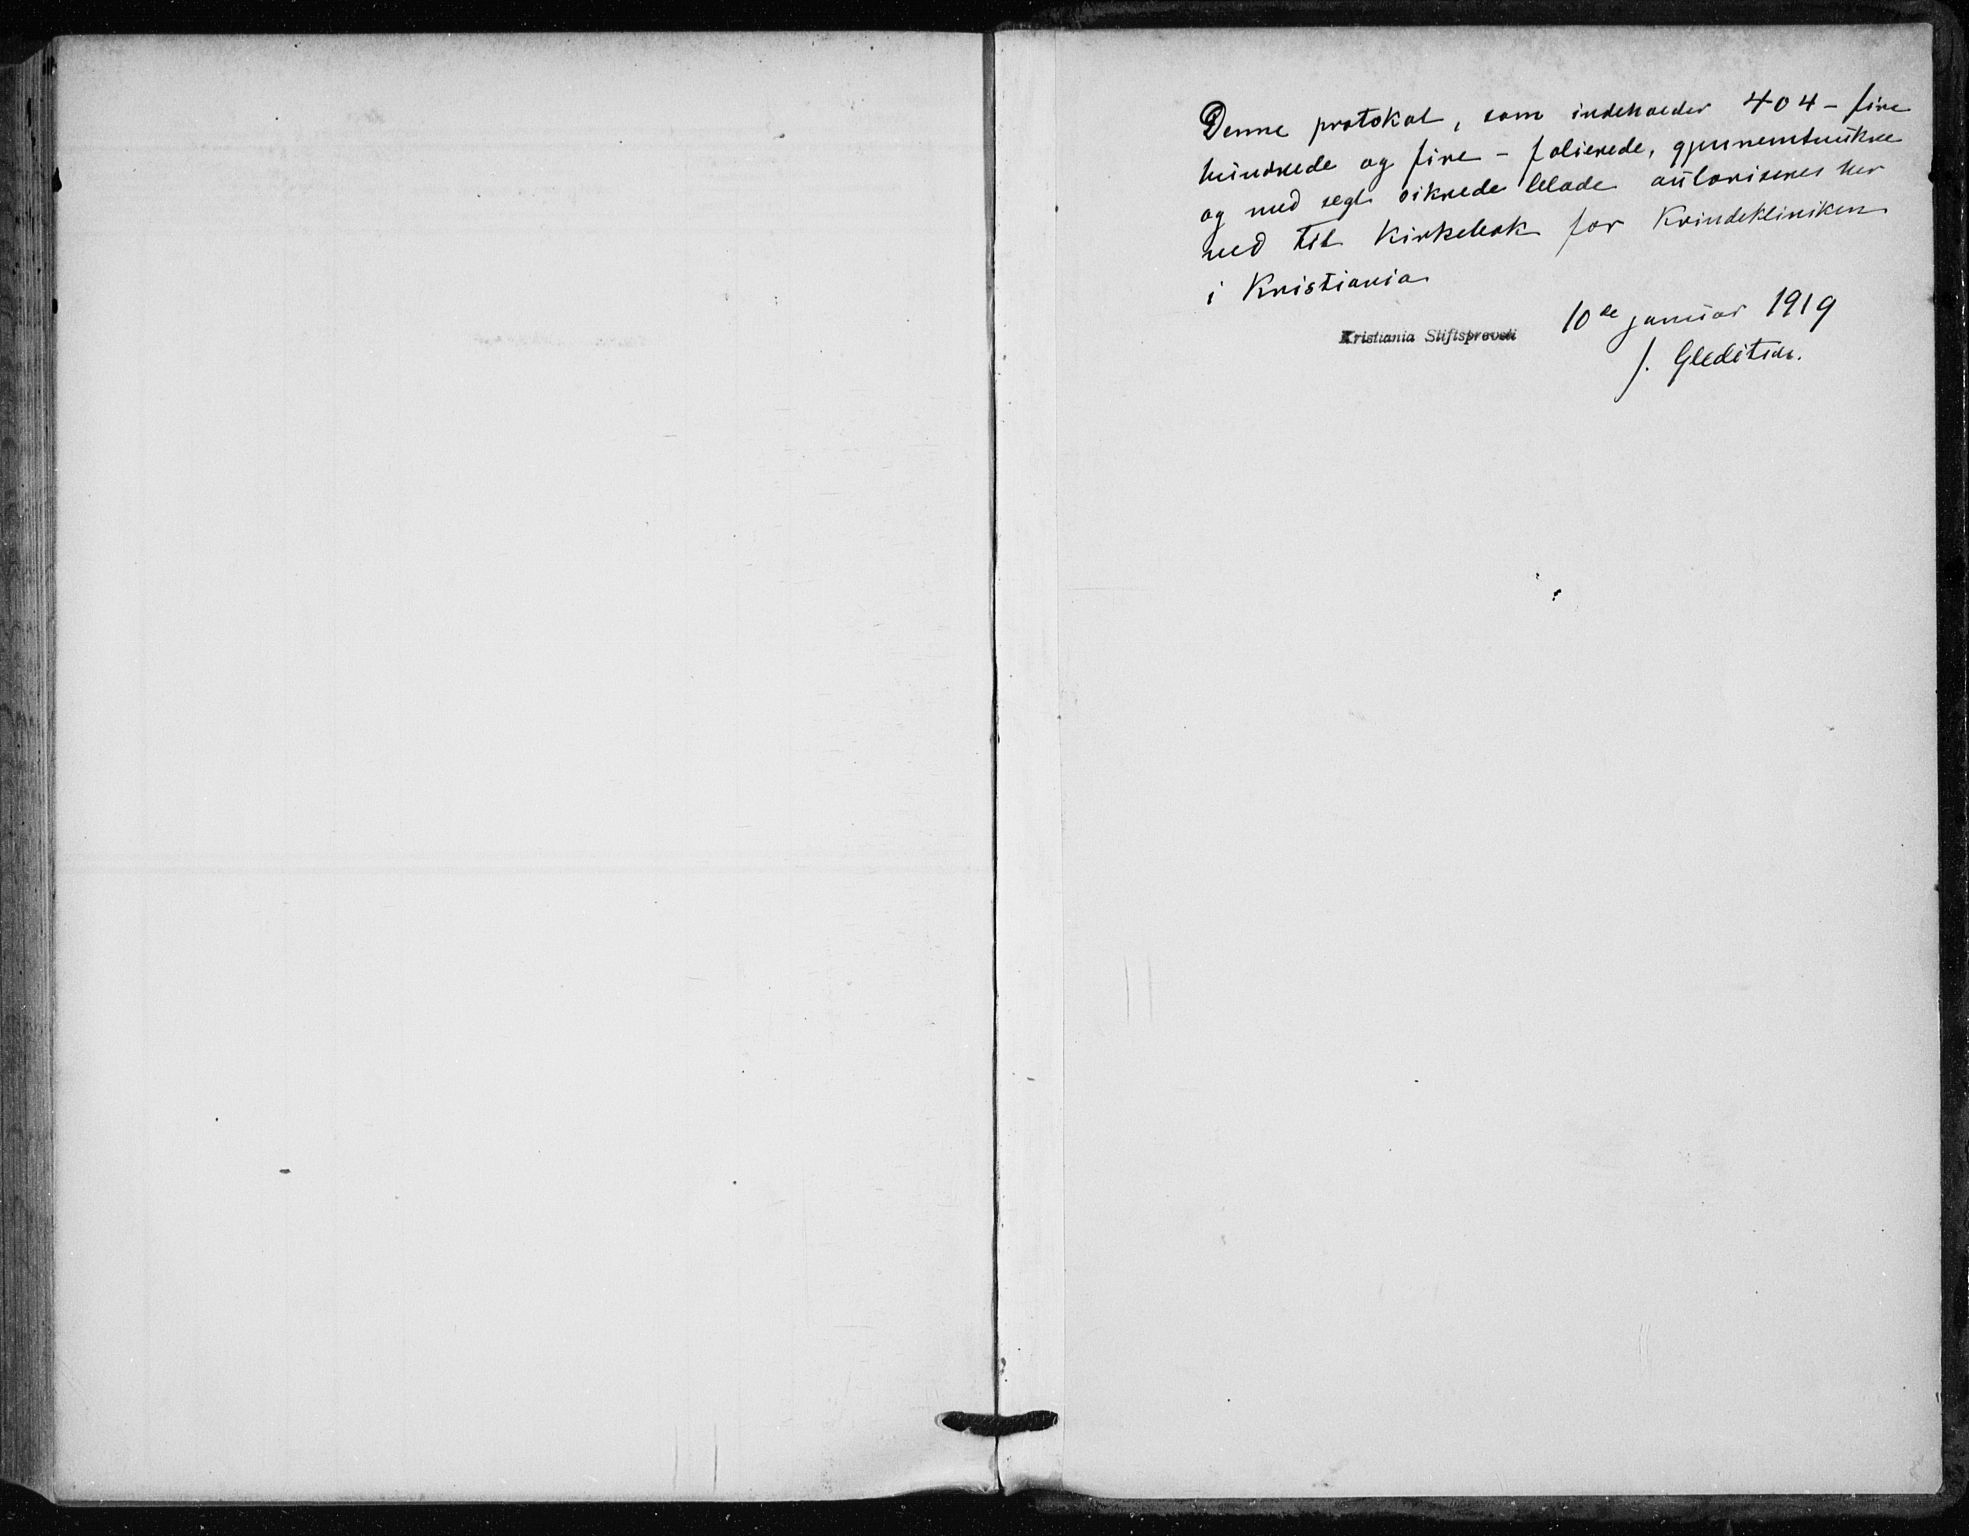 Denne protokol, som indeholder 404 - fire
hundrede og fire - folierede, gjennemtrukne
og med segl sikrede blade autoriseres her
ved til kirkebok for Kvindekliniken
i Kristiania
Kristiania Stiftsprovsti 10de januar 1919
J. Gleditsch.